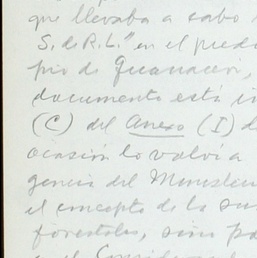 que llevaba a cabo
S. de R.L." en el predio
pio de Guanaceví,
documento está in
(C) del Anexo (I) d
ocasión lo volvía a
gencia del Ministerio
el concepto de la su
forestales, sino pa